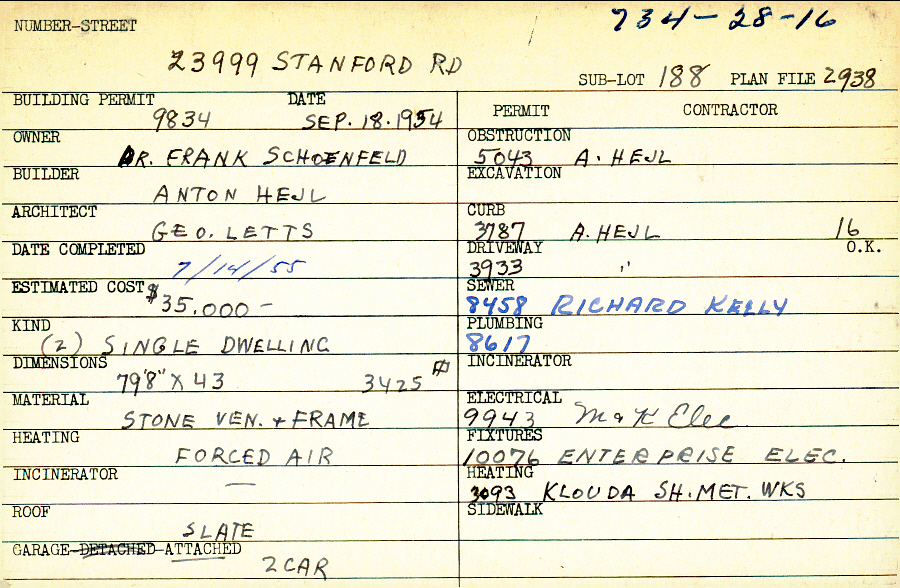 NUMBER-STREET
734-28-16
23999 STANFORD RD
SUB-LOT 188 PLAN FILE 2938
BUILDING PERMIT DATE
9834 SEP. 18. 1954
OWNER
DR. FRANK SCHOENFELD
BUILDER
ANTON HEJL
ARCHITECT
GEO. LETTS
DATE COMPLETED
7/14/55
ESTIMATED COST
$35,000 -
KIND
(2) SINGLE DWELLING
DIMENSIONS
79'8" X 43 3425
MATERIAL
STONE VEN. + FRAME
HEATING
FORCED AIR
INCINERATOR
—
ROOF
SLATE
GARAGE-DETACHED-ATTACHED
2 CAR
PERMIT CONTRACTOR
OBSTRUCTION
5043 A. HEJL
EXCAVATION
CURB
3787 A. HEJL 16
DRIVEWAY O.K.
3933 "
SEWER
8458 RICHARD KELLY
PLUMBING
8617
INCINERATOR
ELECTRICAL
9943 M & K Elec
FIXTURES
10076 ENTERPRISE ELEC.
HEATING
3093 KLOUDA SH. MET. WKS
SIDEWALK